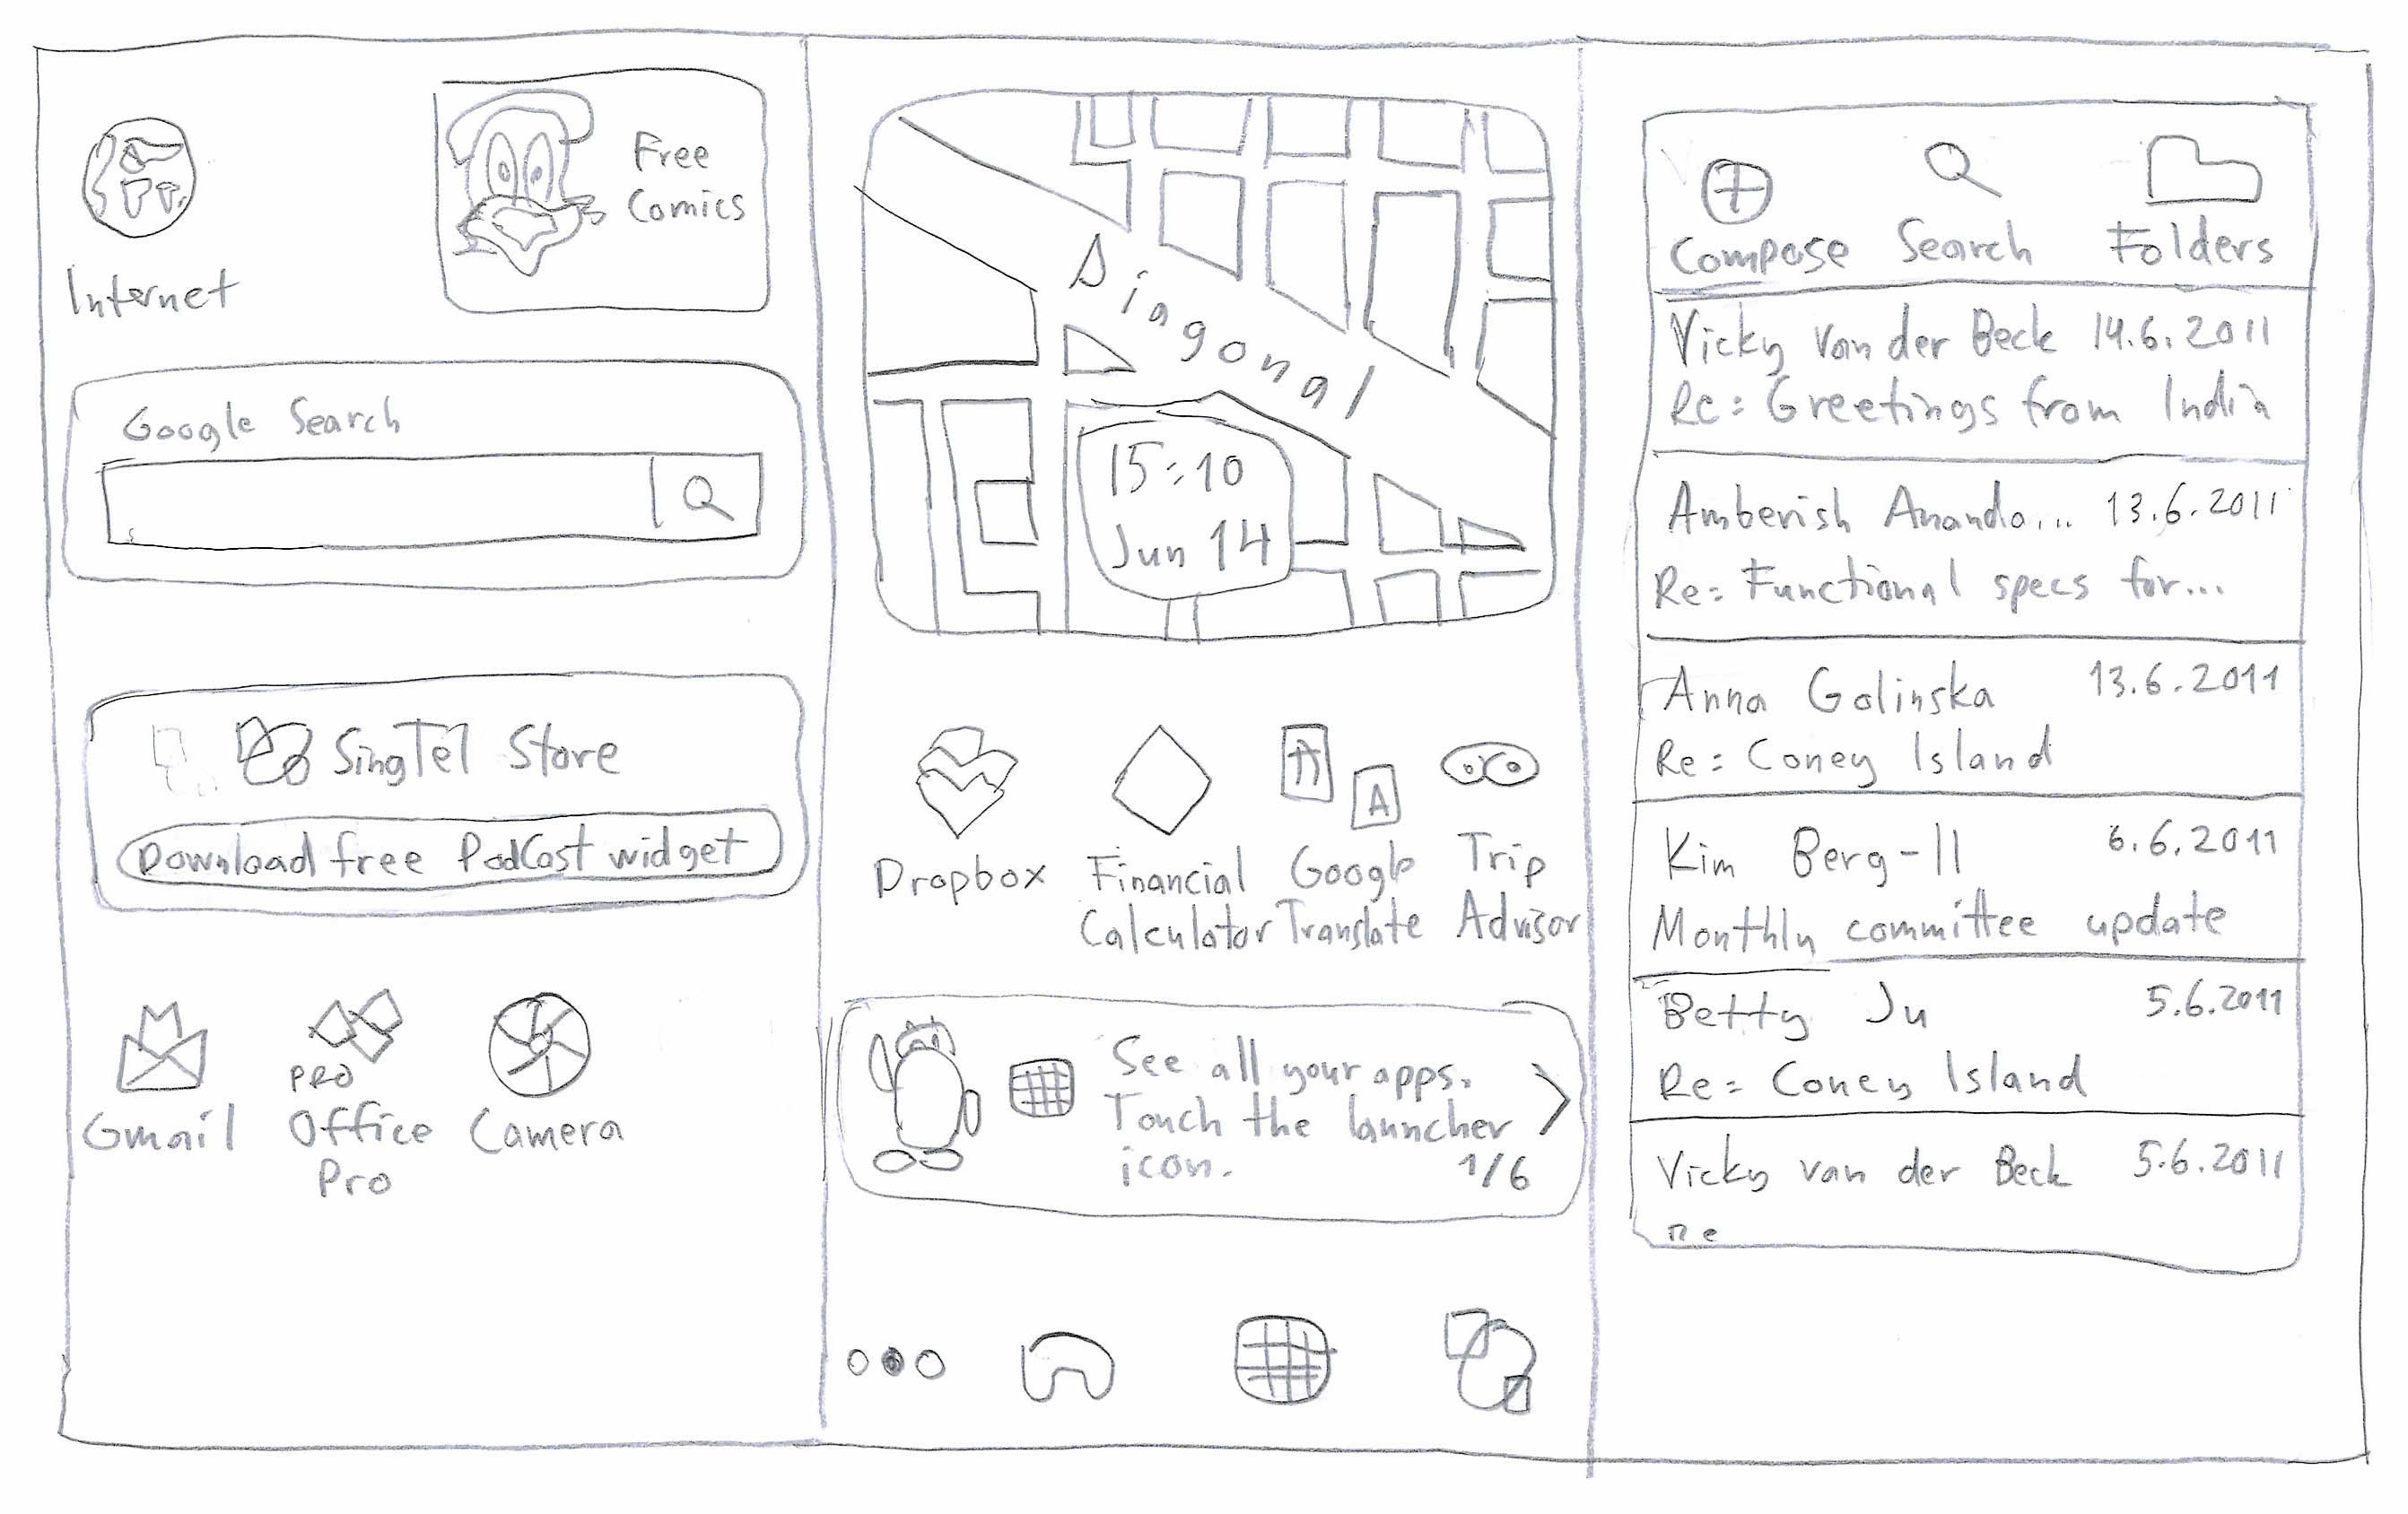 Internet
Free
Comics
Google Search
SingTel Store
Download free PodCast widget
PRO
Gmail
Office
Pro
Camera
Diagonal
15:10
Jun 14
Dropbox
Financial
Calculator
Google
Translate
Trip
Advisor
A
See all your apps.
Touch the launcher
icon.
1/6
Compose Search Folders
Vicky van der Beck 14.6.2011
Re: Greetings from India
Amberish Ananda... 13.6.2011
Re: Functional specs for...
Anna Golinska 13.6.2011
Re: Coney Island
Kim Berg-II 6.6.2011
Monthly committee update
Betty Ju 5.6.2011
Re: Coney Island
Vicky van der Beck 5.6.2011
Re